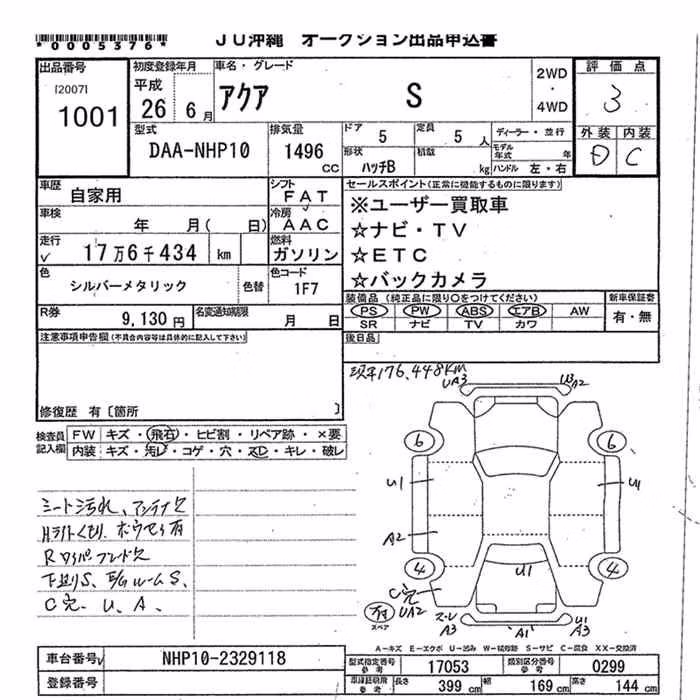 *0005376*
JU沖縄 オークション出品申込書
出品番号
[2007]
1001
初度登録年月
平成
26 6月
車名・グレード
アクア S
2WD
・
4WD
評価点
3
外装 内装
D C
型式
DAA-NHP10
排気量
1496
cc
ドア 5
定員 5 人
形状 ハッチB
積載 kg
ディーラー・並行
モデル年式 年
ハンドル 左・右
車歴 自家用
シフト FAT
車検 年 月( 日)
冷房 AAC
走行 17万6千434 km
燃料 ガソリン
色 シルバーメタリック
色替
色コード 1F7
R券 9,130円
名変通知期限 月 日
セールスポイント(正常に機能するものに限ります)
※ユーザー買取車
☆ナビ・TV
☆ETC
☆バックカメラ
装備品(純正品に限り○をつけてください)
新車保証書
PS PW ABS エアB AW
SR ナビ TV カワ
有・無
後日品
注意事項申告欄(不具合内容等は具体的に記入して下さい)
修復歴 有〔箇所 〕
検査員記入欄
FW キズ・飛石・ヒビ割・リペア跡・×要
内装 キズ・汚レ・コゲ・穴・スレ・キレ・破レ
シート汚れ、アンテナ欠
Hライトくもり、
Rワイパーブレード欠
下廻りS、E/GルームS、
C穴、U、A、
現平176,448KM
UA3
U3
A2
6
6
U1
U1
A2
4
4
U1
C穴
UA2
スペア
スレ
A3
A1
U1
A3
A-キズ E-エクボ U-凹み W-補修跡 S-サビ C-腐食 XX-交換済
車台番号 NHP10-2329118
登録番号
型式指定番号 参考 17053
類別区分番号 参考 0299
車庫証明用 参考 長さ 399 cm 幅 169 cm 高さ 144 cm